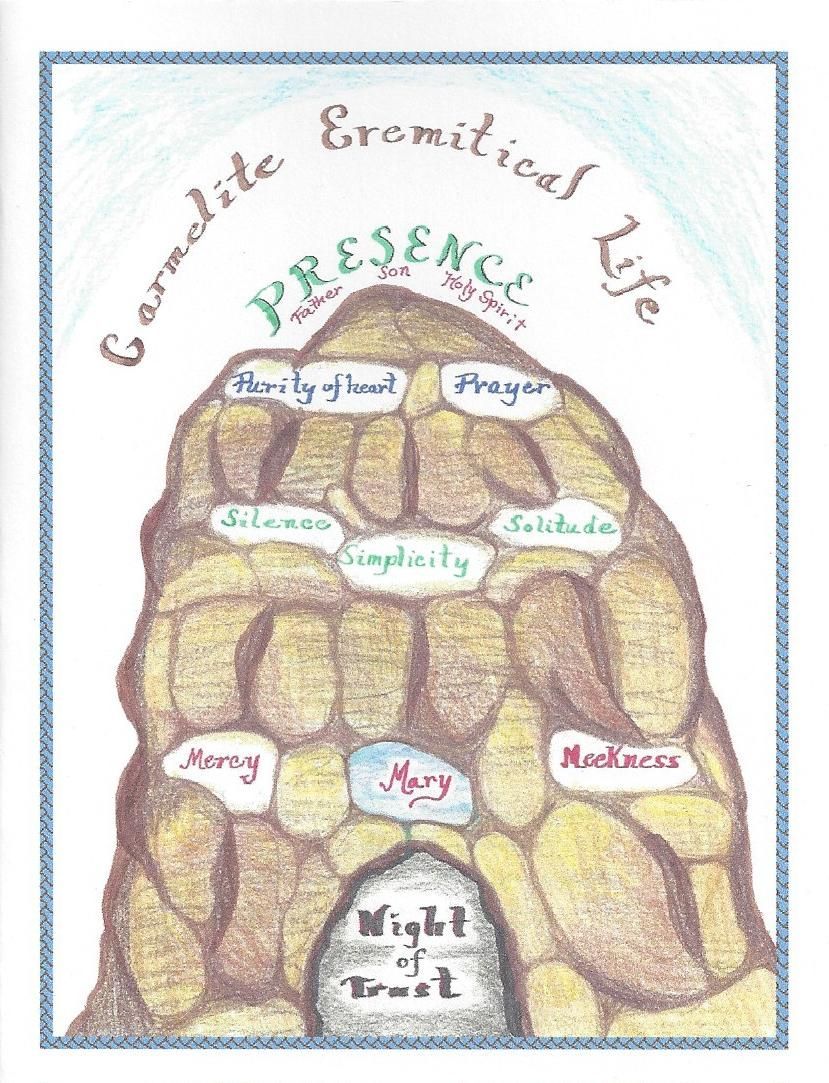 Carmelite Eremitical Life
PRESENCE
Father Son Holy Spirit
Purity of heart Prayer
Silence Solitude
Simplicity
Mercy Mary Meekness
Night
of
Trust